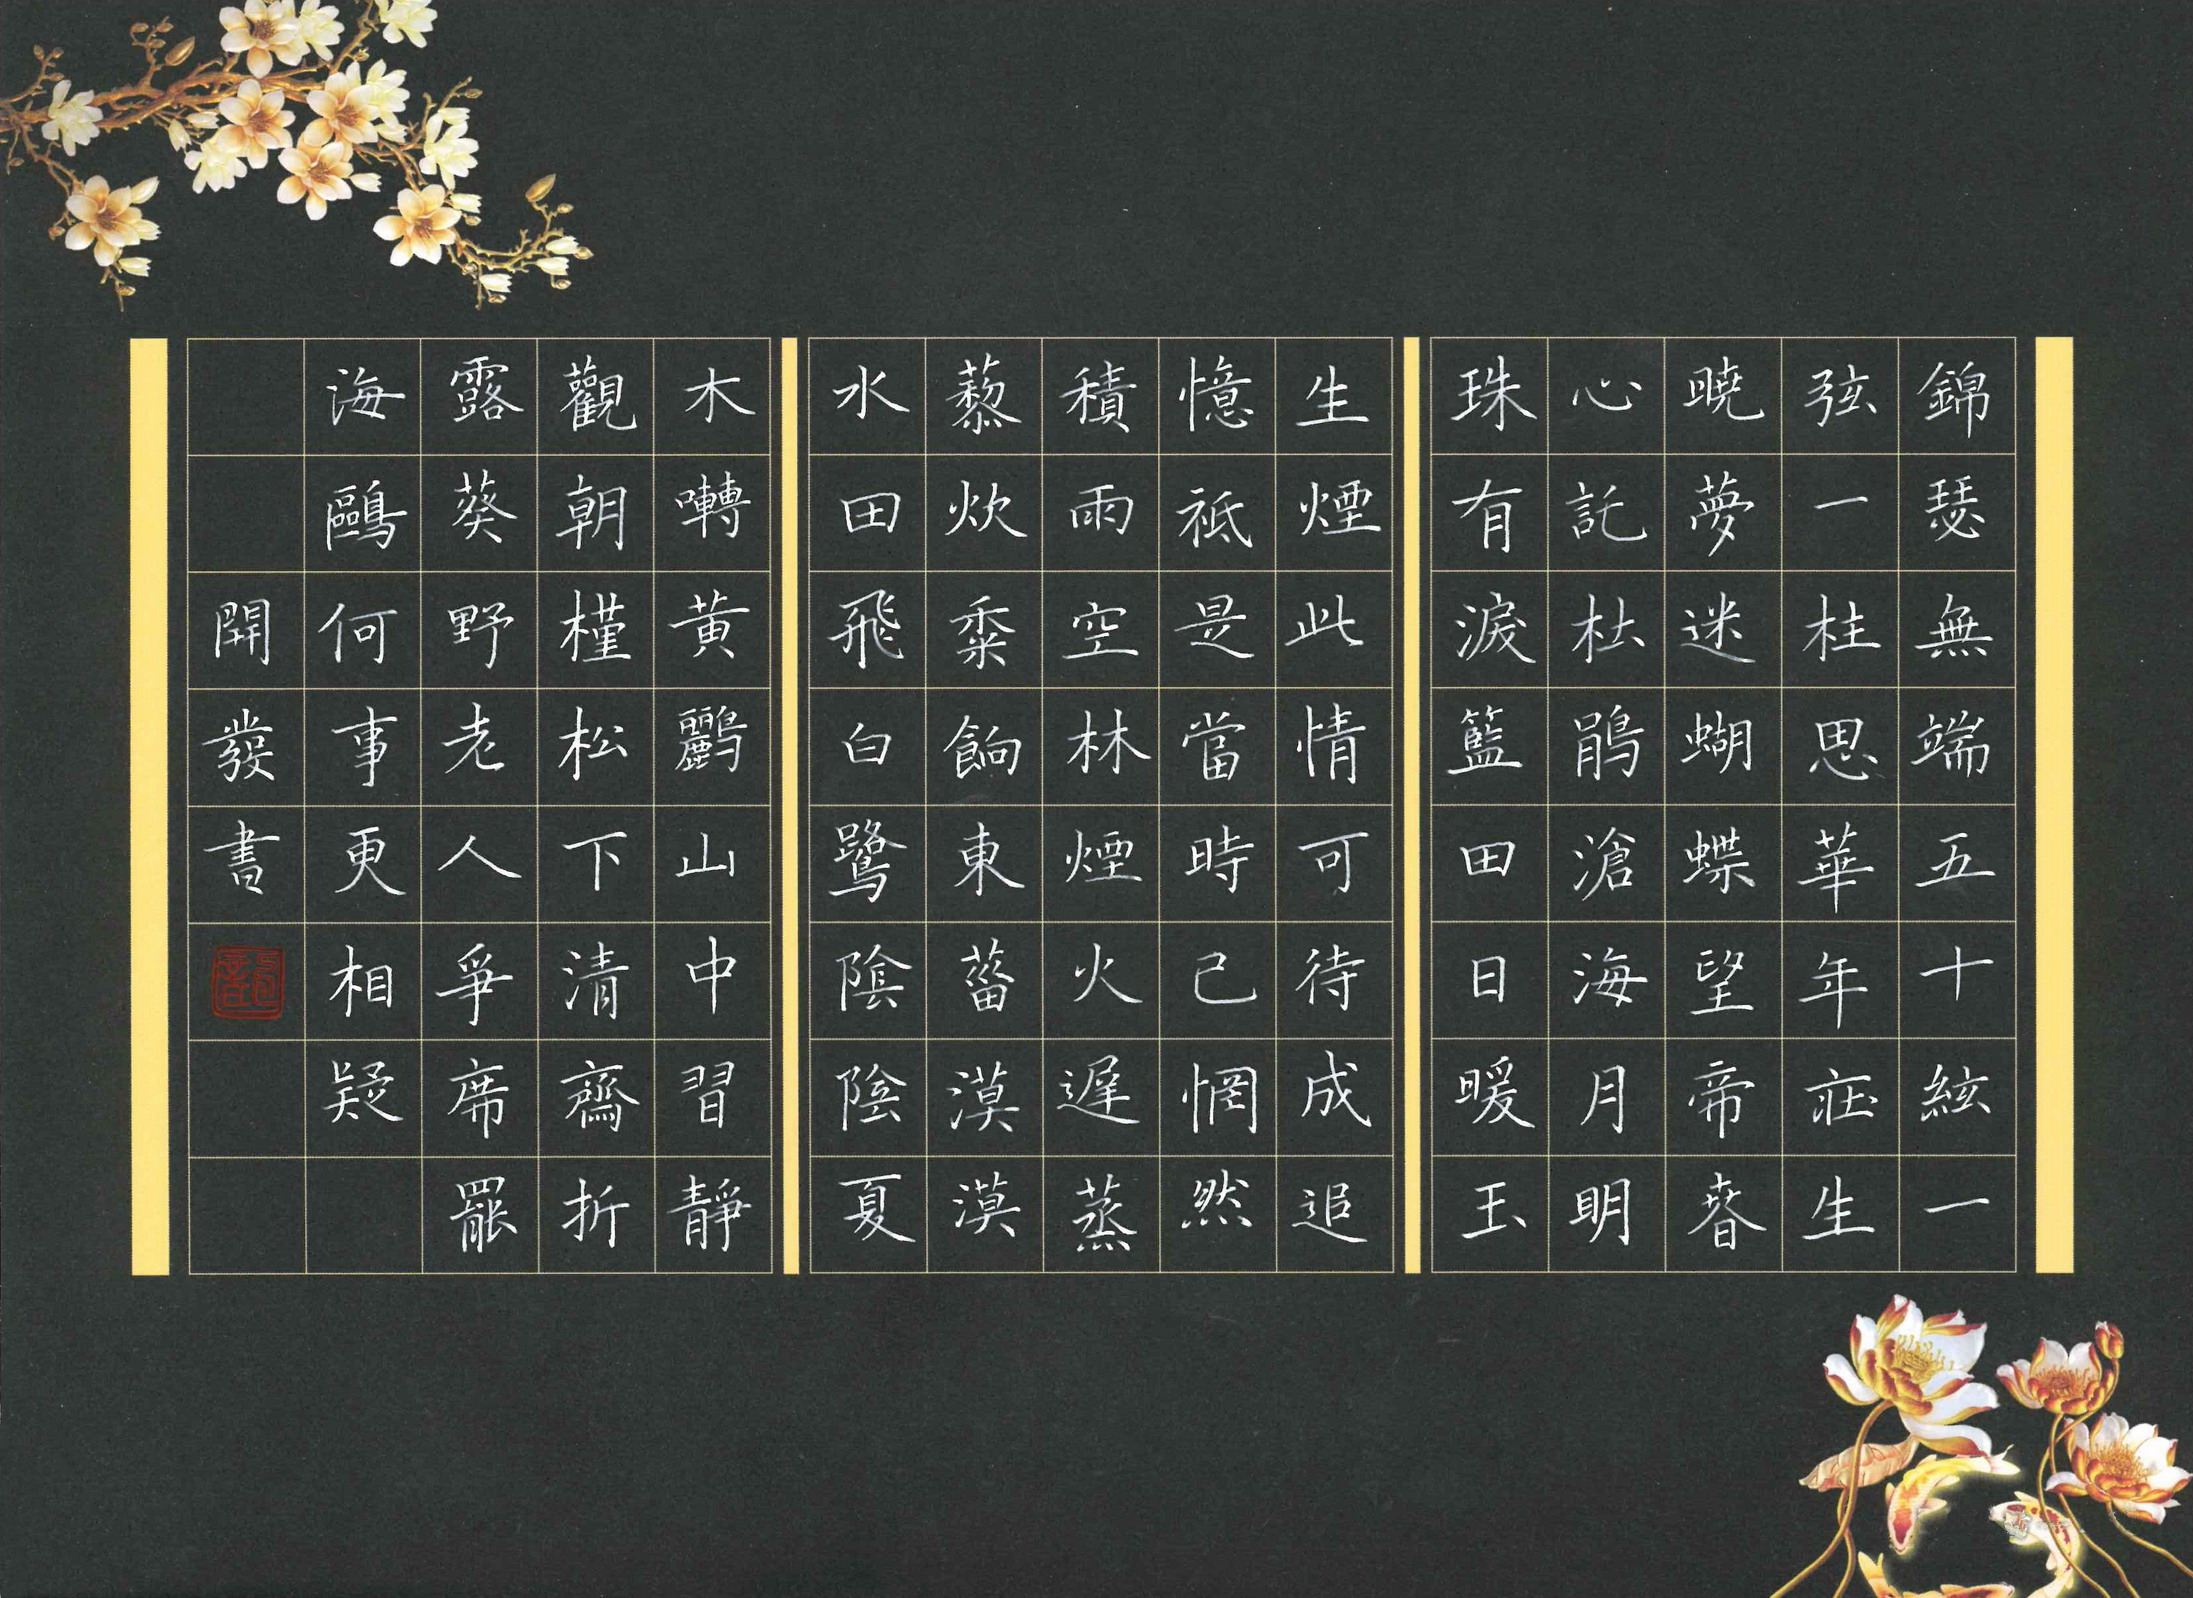 錦瑟無端五十絃一
弦一柱思華年莊生
曉夢迷蝴蝶望帝春
心託杜鵑滄海月明
珠有淚籃田日暖玉
生煙此情可待成追
憶祗是當時已惘然
積雨空林煙火遲蒸
藜炊黍餉東菑漠漠
水田飛白鷺陰陰夏
木囀黃鸝山中習靜
觀朝槿松下清齋折
露葵野老人爭席罷
海鷗何事更相疑
開發書